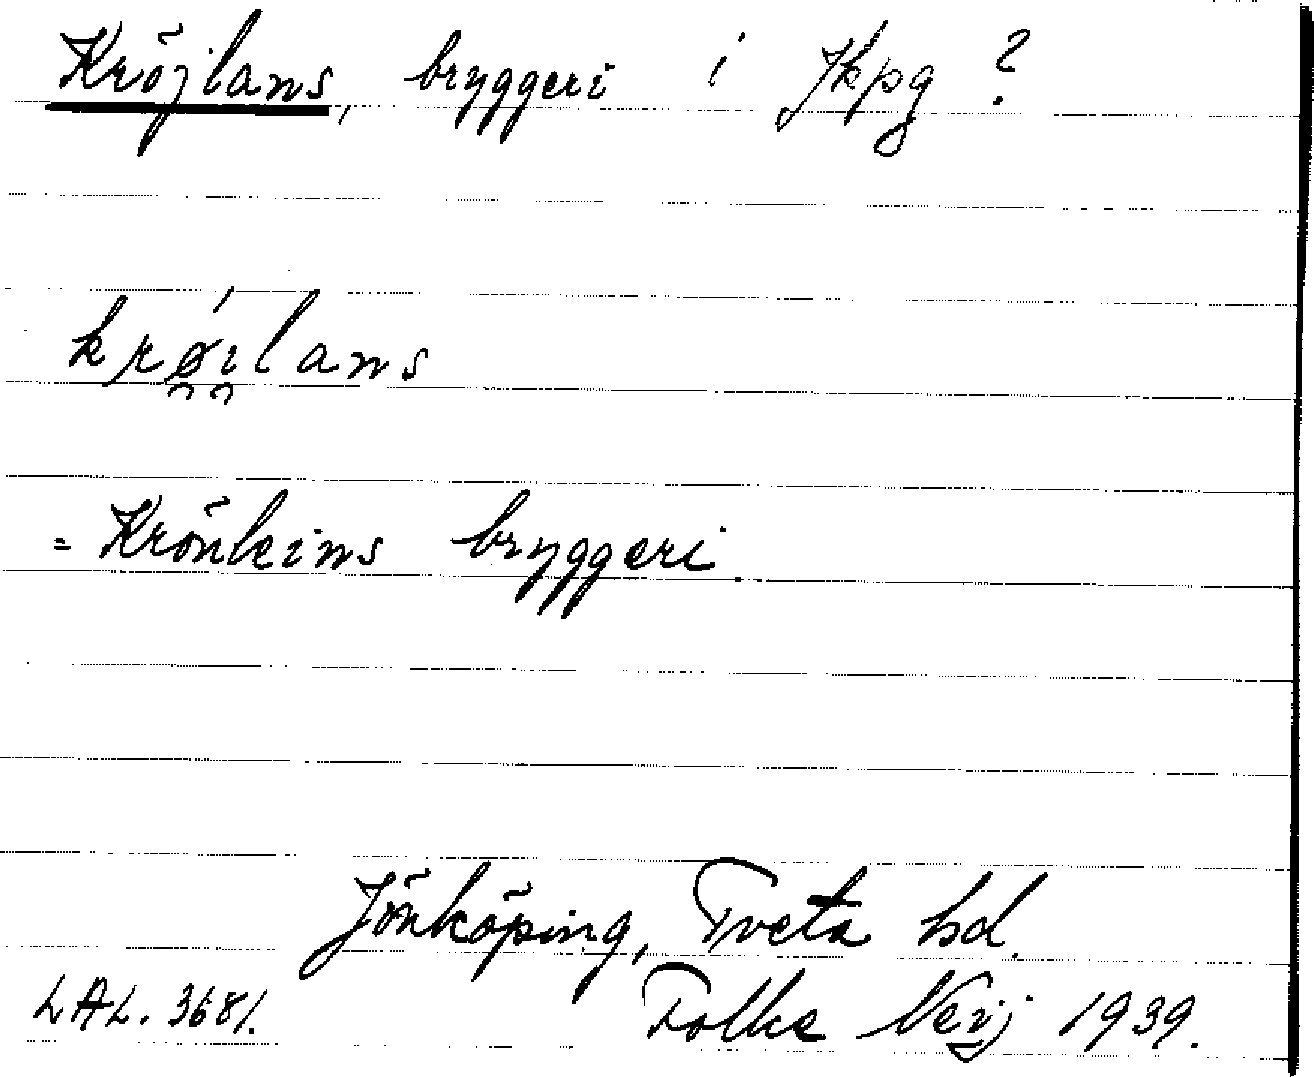 Kröjlans, bryggeri i Jkpg?
krøilans
= Krönleins bryggeri.
Jönköping, Tveta hd.
LAL. 3681. Folke 1939.